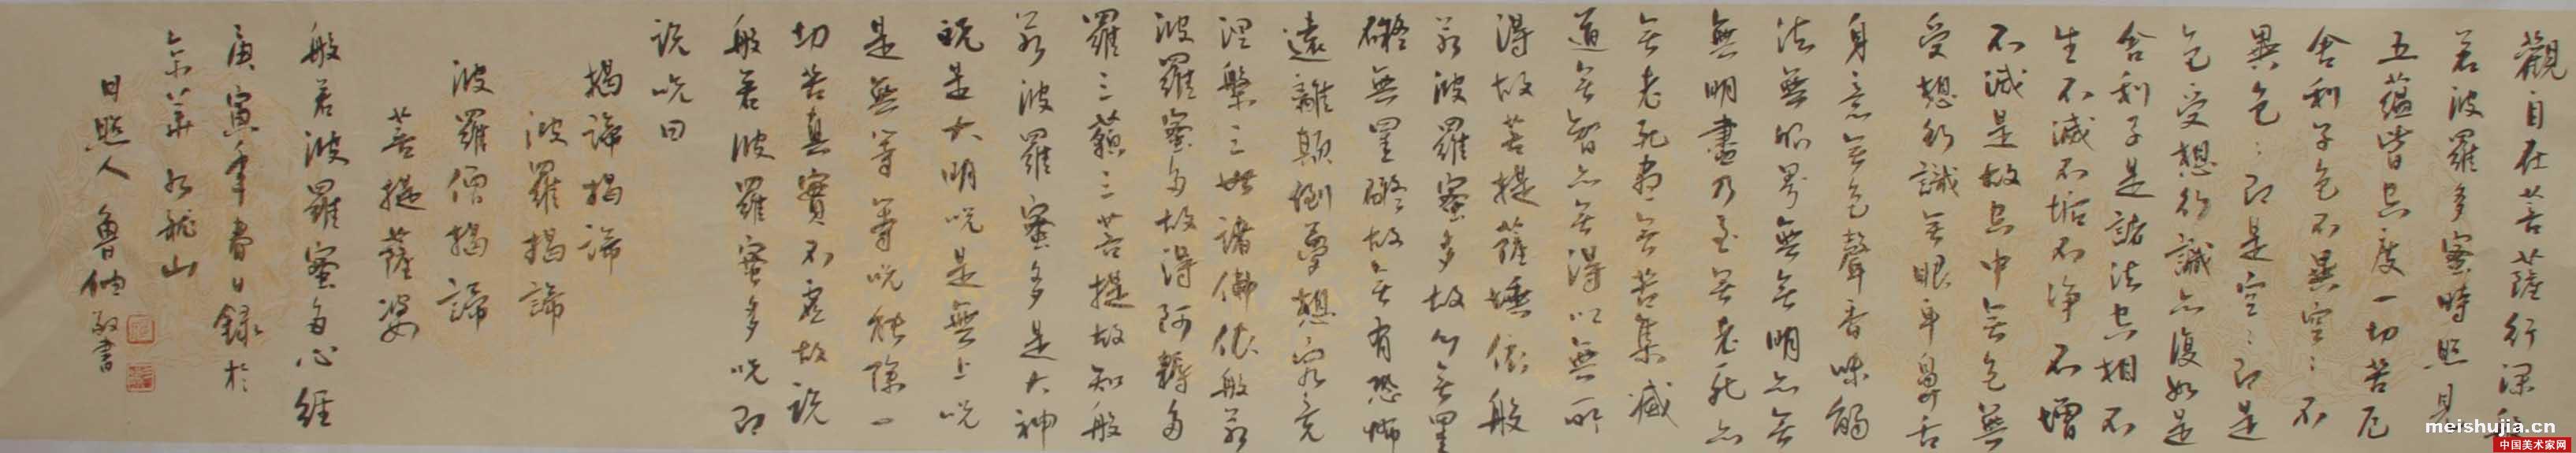 觀自在菩薩行深般
若波羅多蜜時照見
五蘊皆空度一切苦厄
舍利子色不異空〻不
異色〻即是空〻即是
色受想行識亦復如是
舍利子是諸法空相不
生不滅不垢不淨不增
不減是故空中無色無
受想行識無眼耳鼻舌
身意無色聲香味觸
法無眼界無無明亦無
無明盡乃至無老死亦
無老死盡無苦集滅
道無智亦無得以無所
得故菩提薩埵依般
若波羅蜜多故心無罣
礙無罣礙故無有恐怖
遠離顛倒夢想究竟
涅槃三世諸佛依般若
波羅蜜多故得阿耨多
羅三藐三菩提故知般
若波羅蜜多是大神
咒是大明咒是無上咒
是無等等咒能除一
切苦真實不虛故說
般若波羅蜜多咒即
說咒曰
揭諦揭諦
波羅揭諦
波羅僧揭諦
菩提薩婆
般若波羅蜜多心經
庚寅年春日錄於
京華九龍山
日照人魯伸敬書
meishujia.cn
中国美术家网